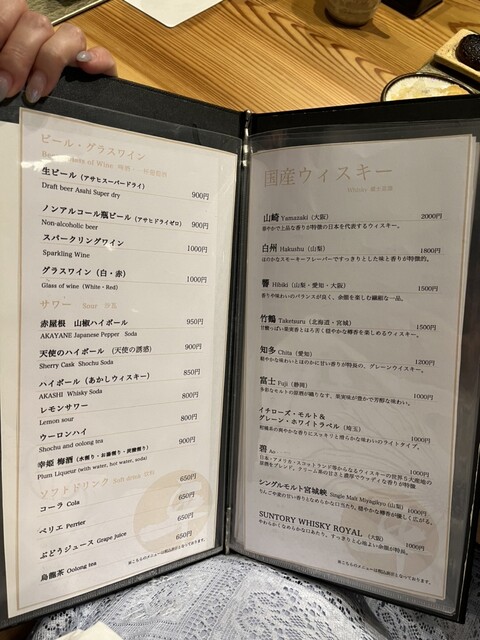 ビール・グラスワイン
of Wine
生ビール（アサヒスーパードライ） 900円
Draft beer Asahi Super dry
ノンアルコール瓶ビール（アサヒドライゼロ） 900円
Non-alcoholic beer
スパークリングワイン 1000円
Sparkling Wine
グラスワイン（白・赤） 1000円
Glass of wine（White・Red）
サワー Sour
赤屋根 山椒ハイボール 950円
AKAYANE Japanese Pepper Soda
天使のハイボール （天使の誘惑） 900円
Sherry Cask Shochu Soda
ハイボール（あかしウィスキー） 850円
AKASHI Whisky Soda
レモンサワー 800円
Lemon sour
ウーロンハイ 800円
Shochu and oolong tea
幸姫 梅酒（水割り・お湯割り・炭酸割り） 900円
Plum Liqueur (with water, hot water, soda)
ソフトドリンク Soft drink
コーラ Cola 650円
ペリエ Perrier 650円
ぶどうジュース Grape Juice 650円
烏龍茶 Oolong tea 650円
国産ウィスキー
山崎 Yamazaki（大阪） 2000円
華やかで上品な香りが特徴の日本を代表するウィスキー。
白州 Hakushu（山梨） 1800円
ほのかなスモーキーフレーバーですっきりとした味と香りが特徴的。
響 Hibiki（山梨・愛知・大阪） 1500円
香りや味わいのバランスが良く、余韻を楽しむ繊細な一品。
竹鶴 Taketsuru（北海道・宮城） 1500円
知多 Chita（愛知） 1200円
軽やかな味わいとほのかに甘い香りが特長の、グレーンウイスキー。
富士 Fuji（静岡） 1000円
多彩なモルトの原酒が織りなす、果実味が豊かで芳醇な味わい。
イチローズ・モルト＆
グレーン・ホワイトラベル（埼玉） 1000円
柑橘系の爽やかな香りにスッキリと滑らかな味わいのライトタイプ。
碧 Ao 1000円
シングルモルト宮城峡 Single Malt Miyagikyo（山梨） 1000円
SUNTORY WHISKY ROYAL （大阪） 1000円
やわらかくなめらかな口あたり。すっきりと心地よい余韻が特長。